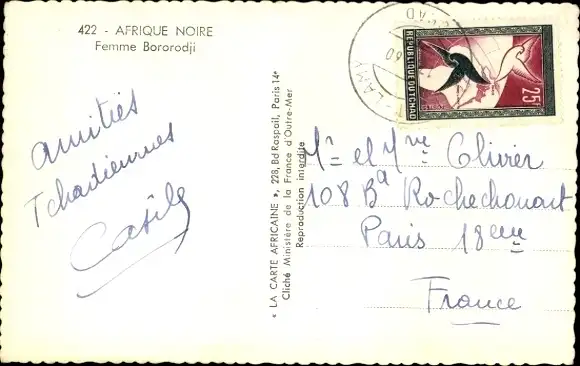 422 - AFRIQUE NOIRE
Femme Bororodji
Amitiés
Tchadiennes
« LA CARTE AFRICAINE », 228, Bd Raspail, Paris 14e
Cliché Ministère de la France d'Outre-Mer
Reproduction interdite
LAMY
REPUBLIQUE DU TCHAD
25F
Mr et Mme Olivier
108 Bd Rochechouart
Paris 18eme
France